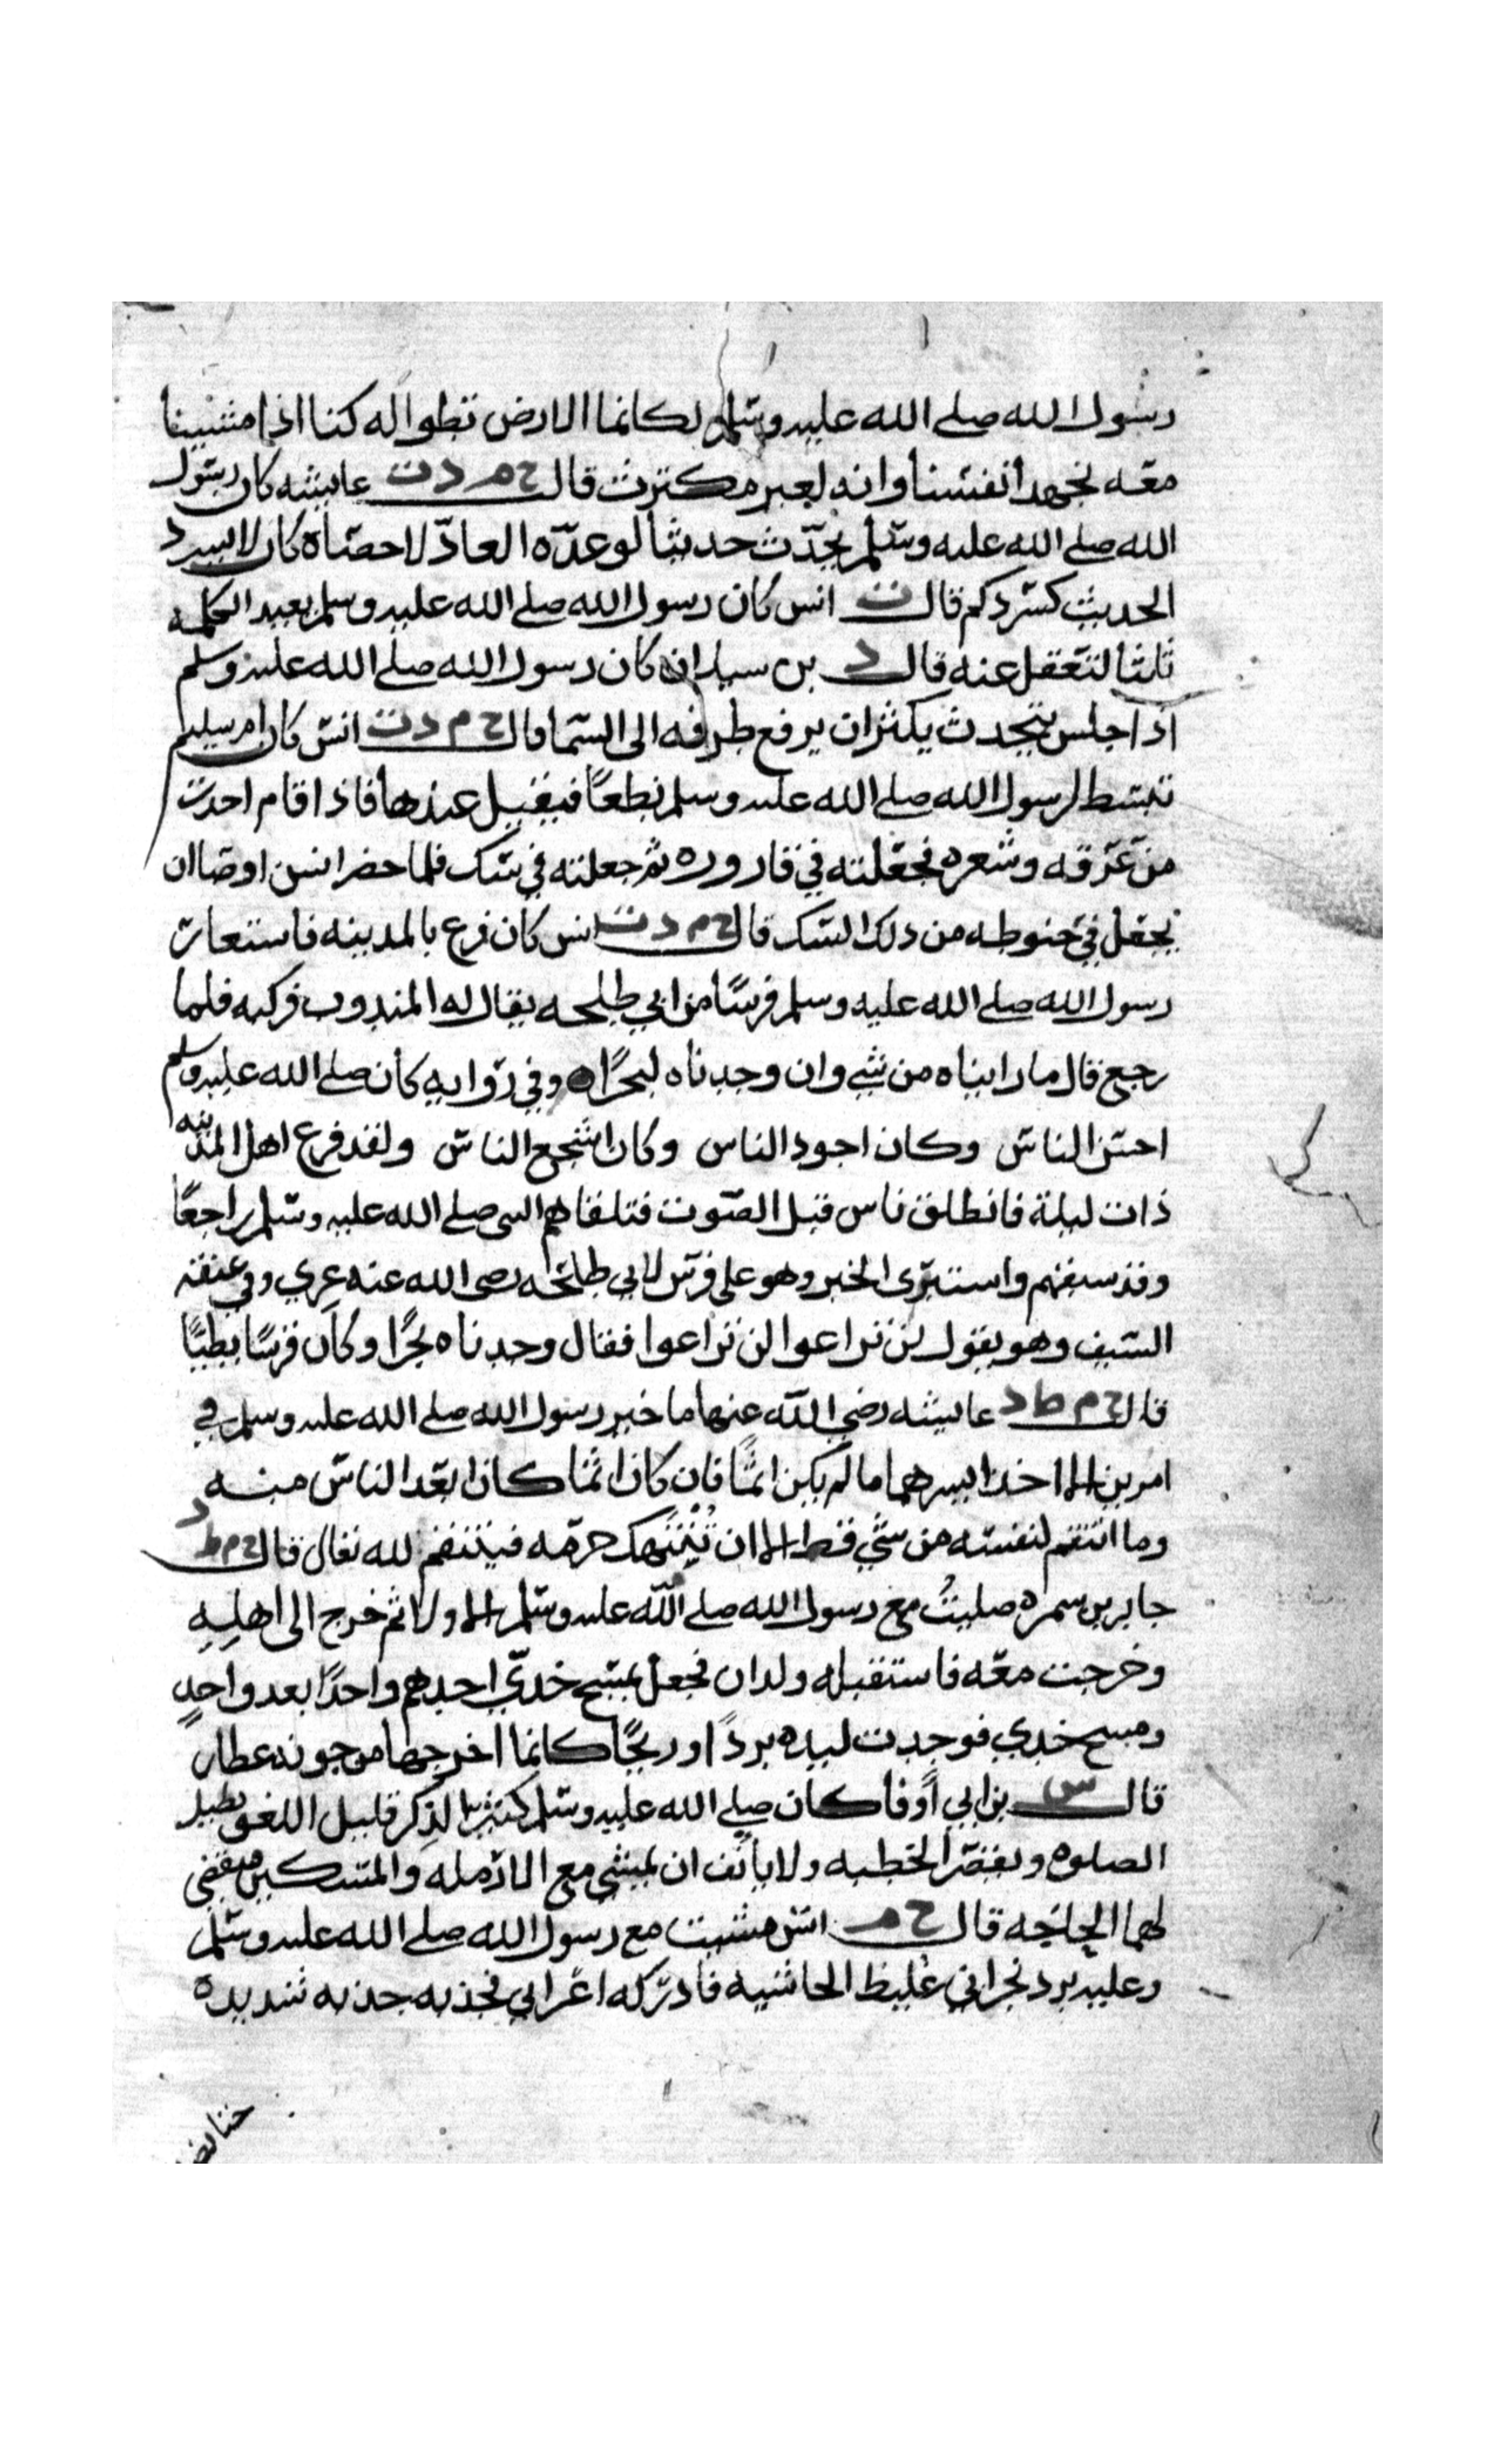 رسول الله صلى الله عليه وسلم لكانما الارض تطوا له كنا اذا مشينا
معه نجهد أنفسنا وانه لغير مكترث قال ح م د ت عايشه كان رسول
الله صلى الله عليه وسلم يحدّث حديثا لو عدّه العادّ لاحصاه كان لا يسرد
الحديث كسردكم قال ت انس كان رسول الله صلى الله عليه وسلم يعيد الكلمه
ثلثا لتعقل عنه قال د بن سلام كان رسول الله صلى الله عليه وسلم
اذا جلس يتحدث يكثر ان يرفع طرفه الى السما قال ح م د ت انس كان ام سليم
تبسط لرسول الله صلى الله عليه وسلم نطعًا فيقيل عندها فاذا قام اخذت
من عرقه وشعره فجعلته في قاروره ثم جعلته في سك فلما حضر انس اوصا ان
يجعل في حنوطه من ذلك السك قال ح م د ت انس كان فزع بالمدينه فاستعار
رسول الله صلى الله عليه وسلم فرسًا من ابي طلحه يقال له المندوب فركبه فلما
رجع قال ما راينا من شي وان وجدناه لبحرًا ه وفي روايه كان صلى الله عليه وسلم
احسن الناس وكان اجود الناس وكان اشجع الناس ولقد فزع اهل المدينه
ذات ليلة فانطلق ناس قبل الصوت فتلقاهم النبي صلى الله عليه وسلم راجعًا
وقد سبقهم واستبرى الخبر وهو على فرس لابي طلحه رضى الله عنه عري وفي عنقه
السيف وهو يقول لن تراعوا لن تراعوا فقال وجدناه بحرًا وكان فرسًا بطيًا
قال ح م ط د عايشه رضي الله عنها ما خير رسول الله صلى الله عليه وسلم في
امرين الا اخذ ايسرهما ما لم يكن اثمًا فان كان اثما كان ابعد الناس منه
وما انتقم لنفسه من شي قط الا ان تُنْتَهك حرمه فينتقم لله تعالى قال ح م ط د
جابر بن سمره صليتُ مع رسول الله صلى الله عليه وسلم الاولا ثم خرج الى اهلِهِ
وخرجت معه فاستقبله ولدان فجعل يمسح خدّي احدهم واحدًا بعد واحدٍ
ومسح خدي فوجدت ليده بردًا وريحًا كانما اخرجها من جونه عطار
قال س بن ابي أوفا كان صلى الله عليه وسلم كثير الذكر قليل اللغو يطيل
الصلوه ويقصر الخطبه ولا يانف ان يمشي مع الارمله والمسكين فيقضي
لهما الحاجه قال ح م انس مشيت مع رسول الله صلى الله عليه وسلم
وعليه برد نجراني غليظ الحاشيه فادركه اعرابي فجذبه جذبه شديده